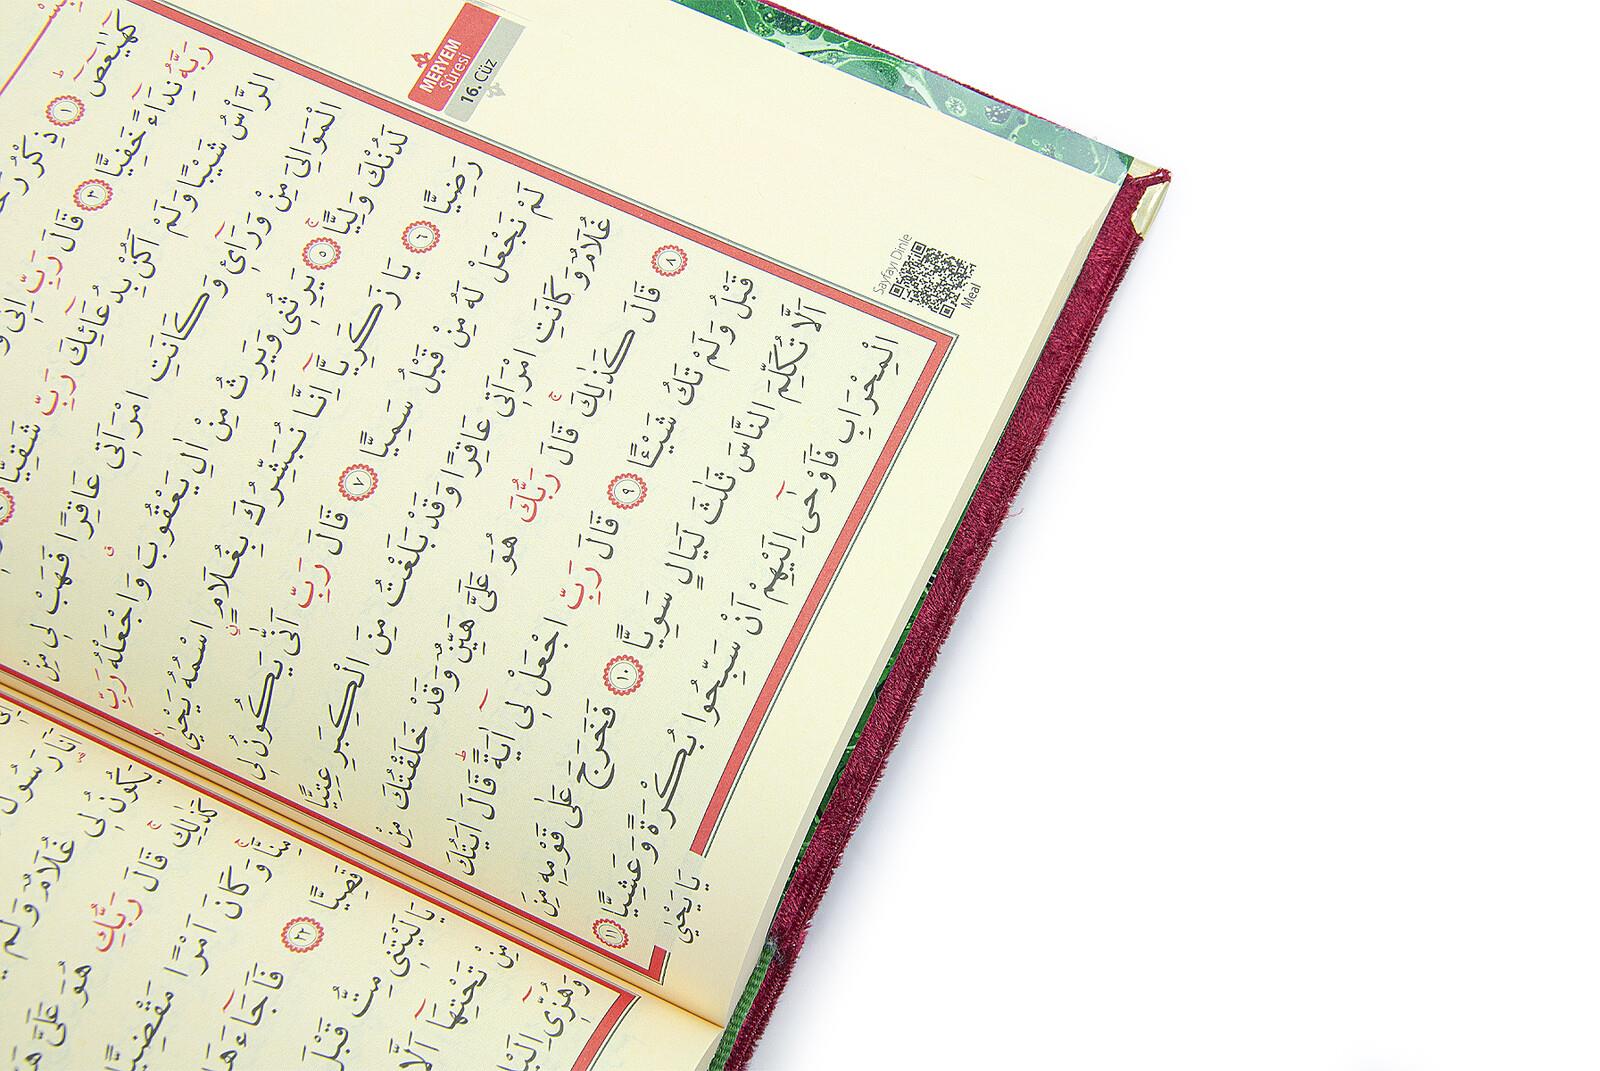 MERYEM
Sûresi
16. Cüz
كٓهٰيٰعٓصٓ ﴿١﴾ ذِكْرُ
رَبَّهُ نِدَٓاءً خَفِيًّا ﴿٣﴾ قَالَ رَبِّ اِنّٖى
الرَّأْسُ شَيْبًا وَلَمْ اَكُنْ بِدُعَٓائِكَ رَبِّ شَقِيًّا
الْمَوَالِىَ مِنْ وَرَٓائٖى وَكَانَتِ امْرَاَتٖى عَاقِرًا فَهَبْ لٖى مِنْ
لَدُنْكَ وَلِيًّا ﴿٥﴾ يَرِثُنٖى وَيَرِثُ مِنْ اٰلِ يَعْقُوبَ وَاجْعَلْهُ رَبِّ
رَضِيًّا ﴿٦﴾ يَا زَكَرِيَّٓا اِنَّا نُبَشِّرُكَ بِغُلَامٍ اسْمُهُ يَحْيٰى
لَمْ نَجْعَلْ لَهُ مِنْ قَبْلُ سَمِيًّا ﴿٧﴾ قَالَ رَبِّ اَنّٰى يَكُونُ لٖى
غُلَامٌ وَكَانَتِ امْرَاَتٖى عَاقِرًا وَقَدْ بَلَغْتُ مِنَ الْكِبَرِ عِتِيًّا
﴿٨﴾ قَالَ كَذٰلِكَ قَالَ رَبُّكَ هُوَ عَلَىَّ هَيِّنٌ وَقَدْ خَلَقْتُكَ مِنْ
قَبْلُ وَلَمْ تَكُ شَيْـًٔا ﴿٩﴾ قَالَ رَبِّ اجْعَلْ لٖٓى اٰيَةً قَالَ اٰيَتُكَ
اَلَّا تُكَلِّمَ النَّاسَ ثَلٰثَ لَيَالٍ سَوِيًّا ﴿١٠﴾ فَخَرَجَ عَلٰى قَوْمِهٖ مِنَ
الْمِحْرَابِ فَاَوْحٰٓى اِلَيْهِمْ اَنْ سَبِّحُوا بُكْرَةً وَعَشِيًّا ﴿١١﴾
يَا يَحْيٰى
Sayfayı Dinle
Meal
اَنَا رَسُولُ
يَكُونُ لٖى غُلَامٌ وَلَمْ
كَذٰلِكِ قَالَ رَبُّكِ هُوَ عَلَىَّ
مِنَّا وَكَانَ اَمْرًا مَقْضِيًّا
قَصِيًّا ﴿٢٢﴾ فَاَجَٓاءَهَا
يَا لَيْتَنٖى مِتُّ قَبْلَ
مِنْ تَحْتِهَٓا اَلَّا
وَهُزّٖٓى